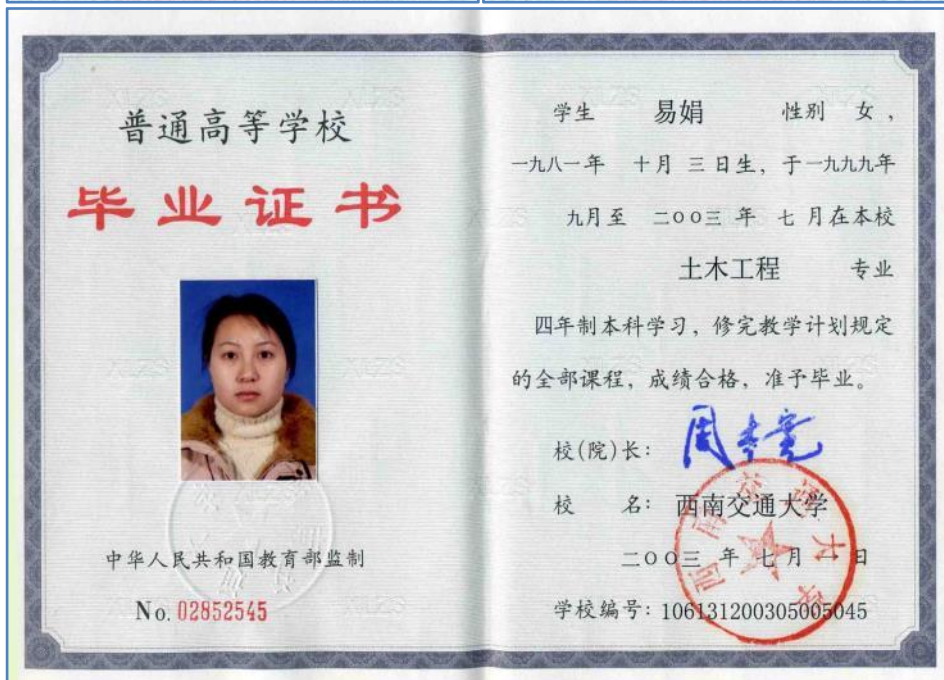 普通高等学校
毕业证书
中华人民共和国教育部监制
No. 02852545
学生 易娟 性别 女，
一九八一年 十月 三日生，于一九九九年
九月至 二00三 年 七 月在本校
土木工程 专业
四年制本科学习，修完教学计划规定
的全部课程，成绩合格，准予毕业。
校(院)长：
校 名：西南交通大学
二00三 年 七 月 一 日
学校编号：106131200305005045
西南交通大学